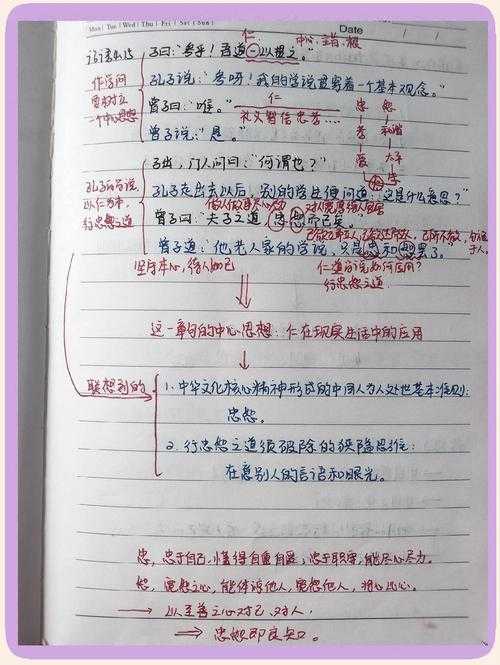 Mon | Tue | Wed | Thu | Fri | Sat | Sun
Date
仁 中心 主旨、根
子曰:“参乎!吾道一以贯之。”
作学问
要树立
一个中心思想
孔子说:“参呀!我的学说贯穿着一个基本观念。”
仁
曾子曰:“唯。”
礼义智信忠孝……
忠 恕
曾子说:“是。”
孝 和谐
爱 太平
子出,门人问曰:“何谓也?”
孔子的学说
以仁为本,
行忠恕之道
孔子走出去以后,别的学生便问道:“这是什么意思?”
曾子曰:“夫子之道,忠恕而已矣。”
己所不欲,勿施
于人。
曾子道:“他老人家的学说,只是忠和恕罢了。”
坚持本心,待人如己
仁道学说如何应用?
行忠恕之道
这一章句的中心思想:仁在现实生活中的应用
联想到的
1. 中华文化核心精神形成的中国人为人处世基本准则:
忠恕。
2. 行忠恕之道须破除的狭隘思维:
在意别人的言语和眼光。
忠,忠于自己,懂得自重自爱;忠于职守,能尽心尽力。
恕,宽恕之心,能体谅他人,宽恕他人,将心比心。
→ 以至善之心对己、对人,
⇒ 忠恕即良知。